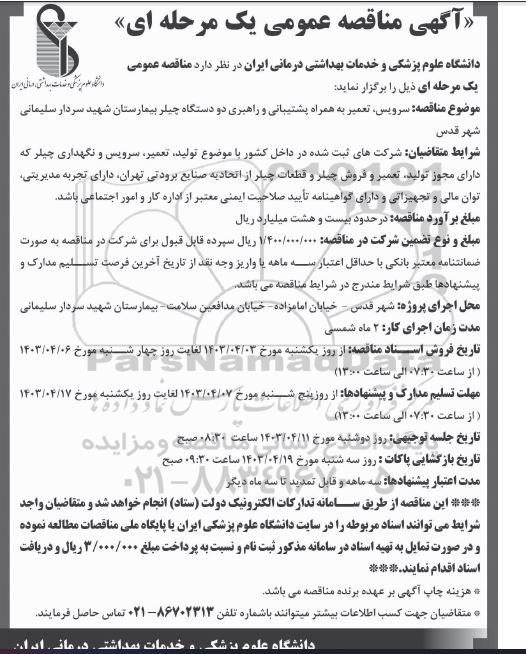 «آگهی مناقصه عمومی یک مرحله ای»
دانشگاه علوم پزشکی و خدمات بهداشتی، درمانی ایران
دانشگاه علوم پزشکی و خدمات بهداشتی درمانی ایران در نظر دارد مناقصه عمومی
یک مرحله ای ذیل را برگزار نماید:
موضوع مناقصه: سرویس، تعمیر به همراه پشتیبانی و راهبری دو دستگاه چیلر بیمارستان شهید سردار سلیمانی
شهر قدس
شرایط متقاضیان: شرکت های ثبت شده در داخل کشور با موضوع تولید، تعمیر، سرویس و نگهداری چیلر که
دارای مجوز تولید، تعمیر و فروش چیلر و قطعات چیلر از اتحادیه صنایع برودتی تهران، دارای تجربه مدیریتی،
توان مالی و تجهیزاتی و دارای گواهینامه تأیید صلاحیت ایمنی معتبر از اداره کار و امور اجتماعی باشد.
مبلغ برآورد مناقصه: در حدود بیست و هشت میلیارد ریال
مبلغ و نوع تضمین شرکت در مناقصه: ۱/۴۰۰/۰۰۰/۰۰۰ ریال سپرده قابل قبول برای شرکت در مناقصه به صورت
ضمانتنامه معتبر بانکی با حداقل اعتبار سه ماهه یا واریز وجه نقد از تاریخ آخرین فرصت تسلیم مدارک و
پیشنهادها طبق شرایط مندرج در شرایط مناقصه می باشد.
محل اجرای پروژه: شهر قدس - خیابان امامزاده- خیابان مدافعین سلامت- بیمارستان شهید سردار سلیمانی
مدت زمان اجرای کار: ۲ ماه شمسی
تاریخ فروش اسناد مناقصه: از روز یکشنبه مورخ ۱۴۰۳/۰۴/۰۳ لغایت روز چهار شنبه مورخ ۱۴۰۳/۰۴/۰۶
( از ساعت ۰۷:۳۰ الی ساعت ۱۳:۰۰)
مهلت تسلیم مدارک و پیشنهادها: از روز پنج شنبه مورخ ۱۴۰۳/۰۴/۰۷ لغایت روز یکشنبه مورخ ۱۴۰۳/۰۴/۱۷
( از ساعت ۰۷:۳۰ الی ساعت ۱۳:۰۰)
تاریخ جلسه توجیهی: روز دوشنبه مورخ ۱۴۰۳/۰۴/۱۱ ساعت ۰۸:۳۰ صبح
تاریخ بازگشایی پاکات : روز سه شنبه مورخ ۱۴۰۳/۰۴/۱۹ ساعت ۰۹:۳۰ صبح
مدت اعتبار پیشنهادها: سه ماهه و قابل تمدید تا سه ماه دیگر
*** این مناقصه از طریق سامانه تدارکات الکترونیک دولت (ستاد) انجام خواهد شد و متقاضیان واجد
شرایط می توانند اسناد مربوطه را در سایت دانشگاه علوم پزشکی ایران یا پایگاه ملی مناقصات مطالعه نموده
و در صورت تمایل به تهیه اسناد در سامانه مذکور ثبت نام و نسبت به پرداخت مبلغ ۳/۰۰۰/۰۰۰ ریال و دریافت
اسناد اقدام نمایند.***
* هزینه چاپ آگهی بر عهده برنده مناقصه می باشد.
* متقاضیان جهت کسب اطلاعات بیشتر میتوانند باشماره تلفن ۸۶۷۰۲۳۱۳-۰۲۱ تماس حاصل فرمایند.
دانشگاه علوم پزشکی و خدمات بهداشتی درمانی ایران